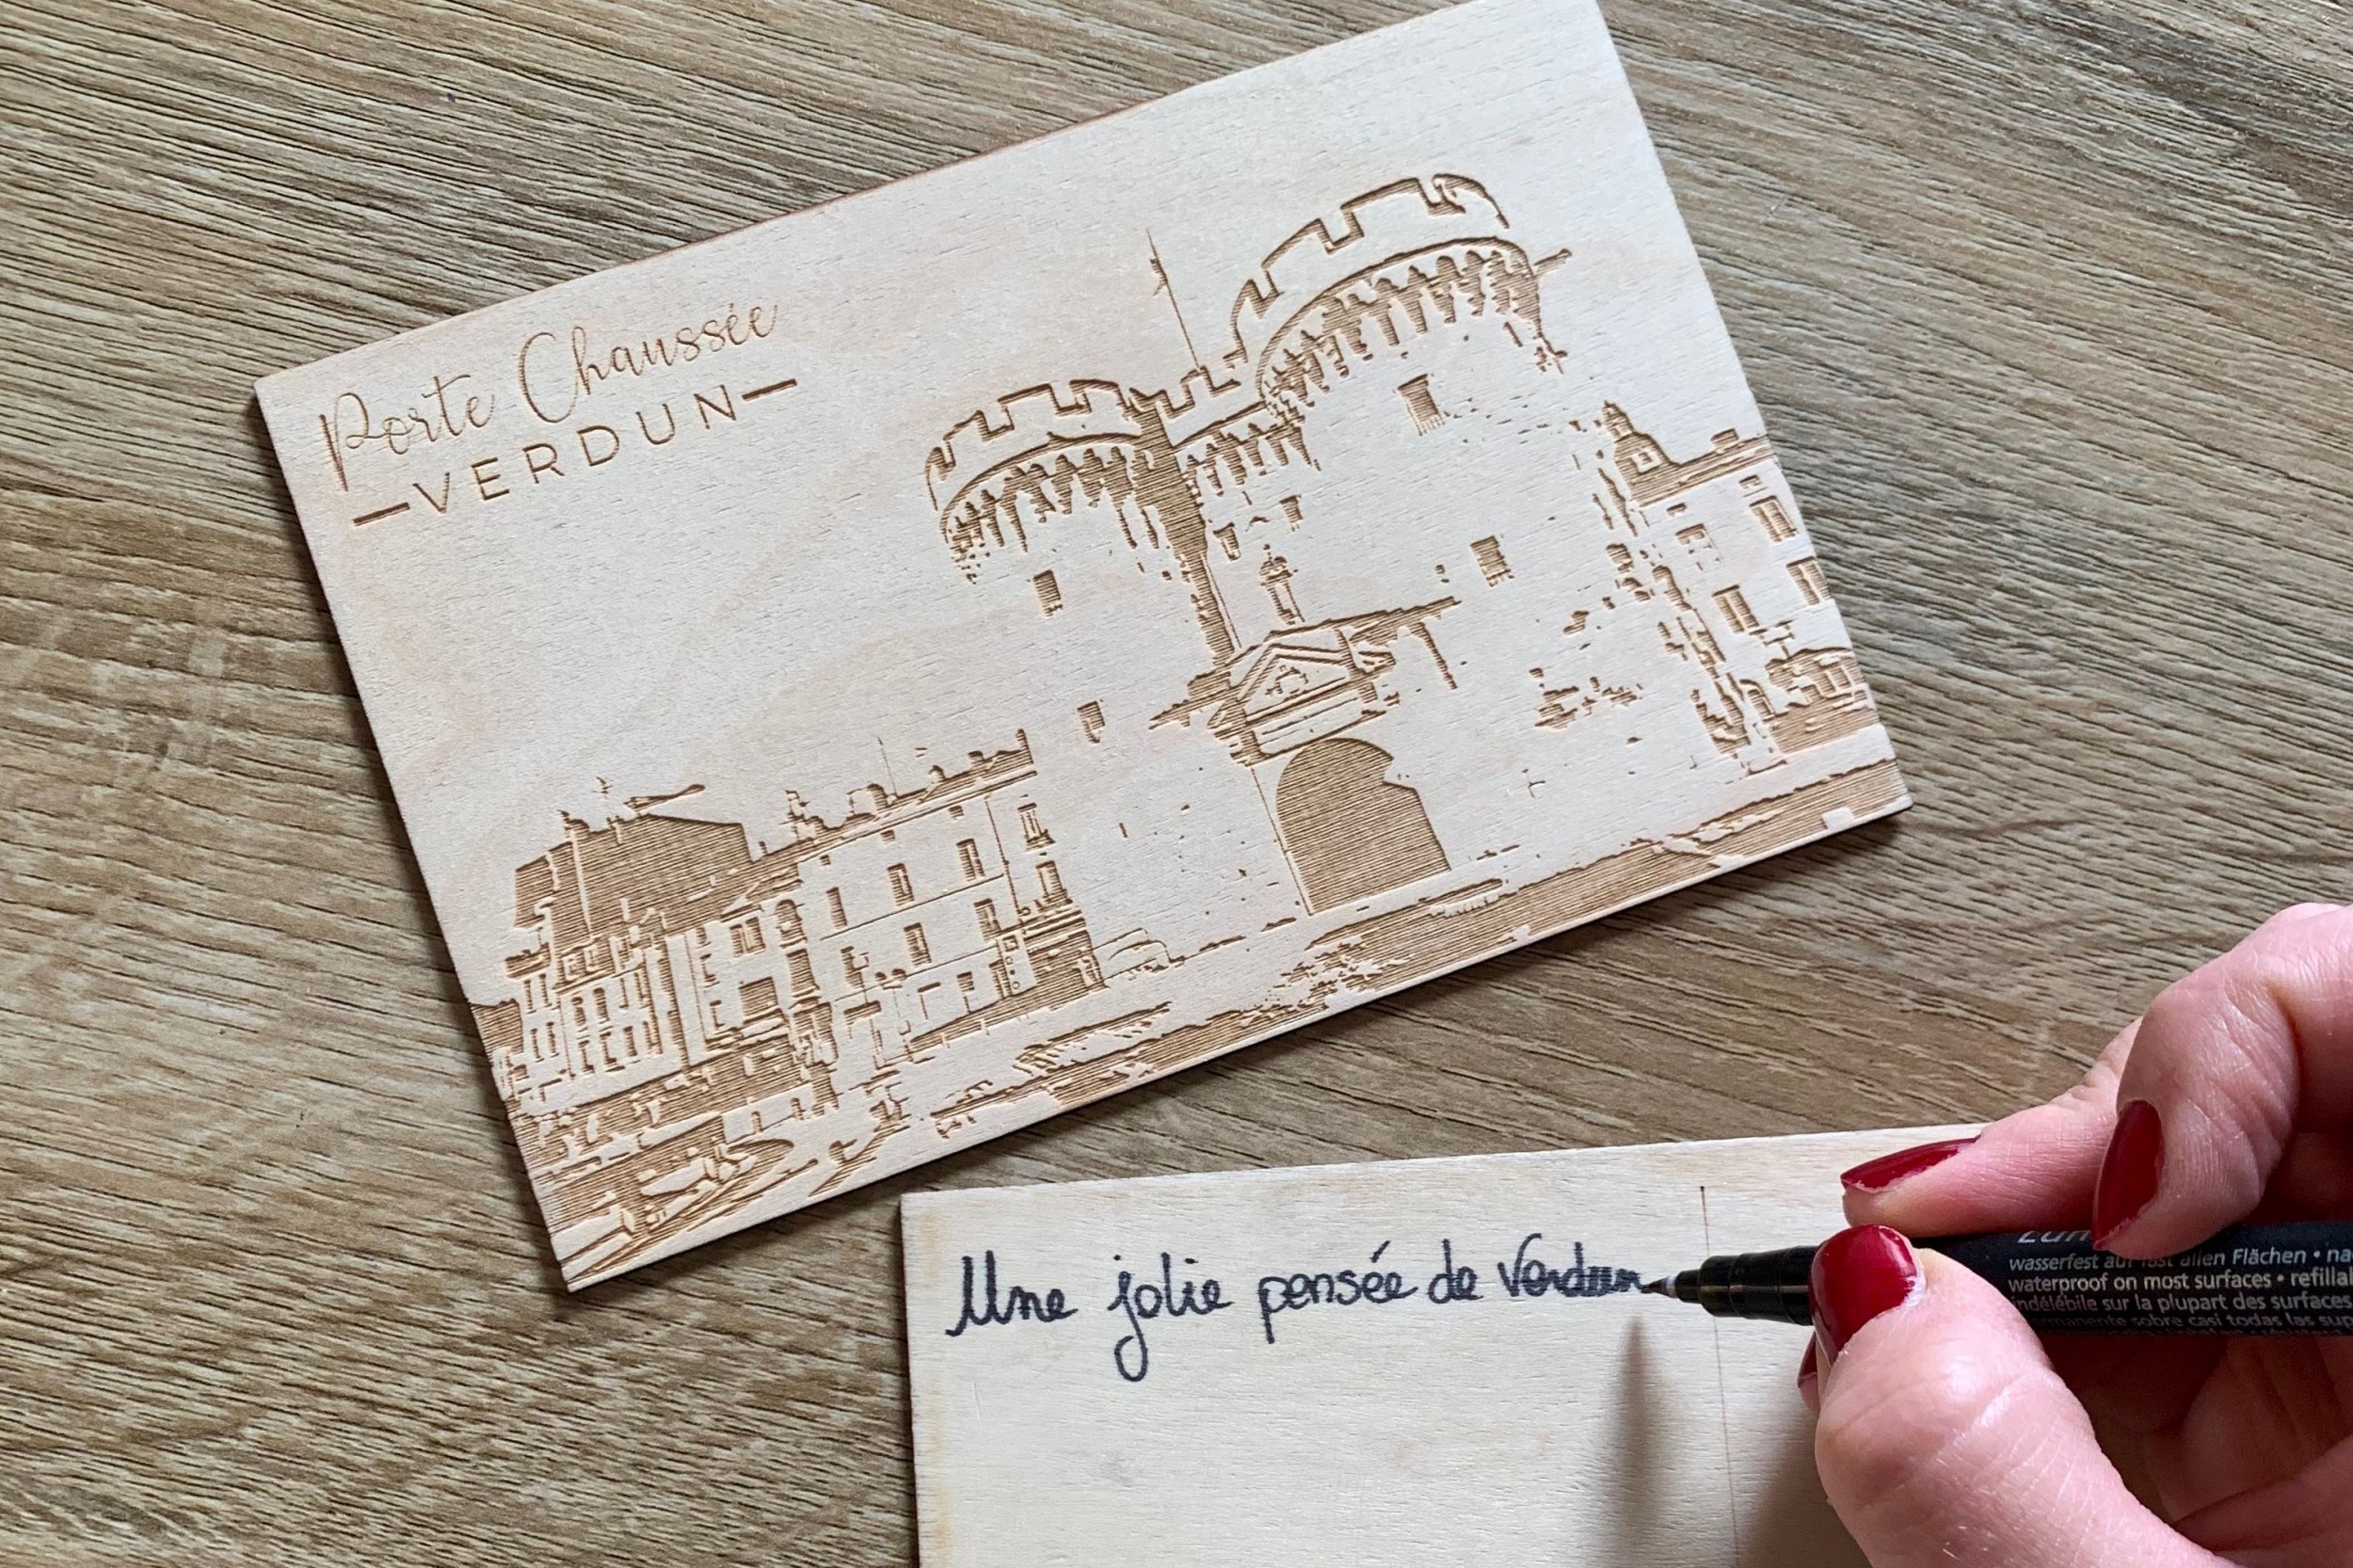 Porte Chaussée
VERDUN
Une jolie pensée de Verdun
wasserfest auf fast allen Flächen •
waterproof on most surfaces •
indélébile sur la plupart des surfaces
sobre casi todas las